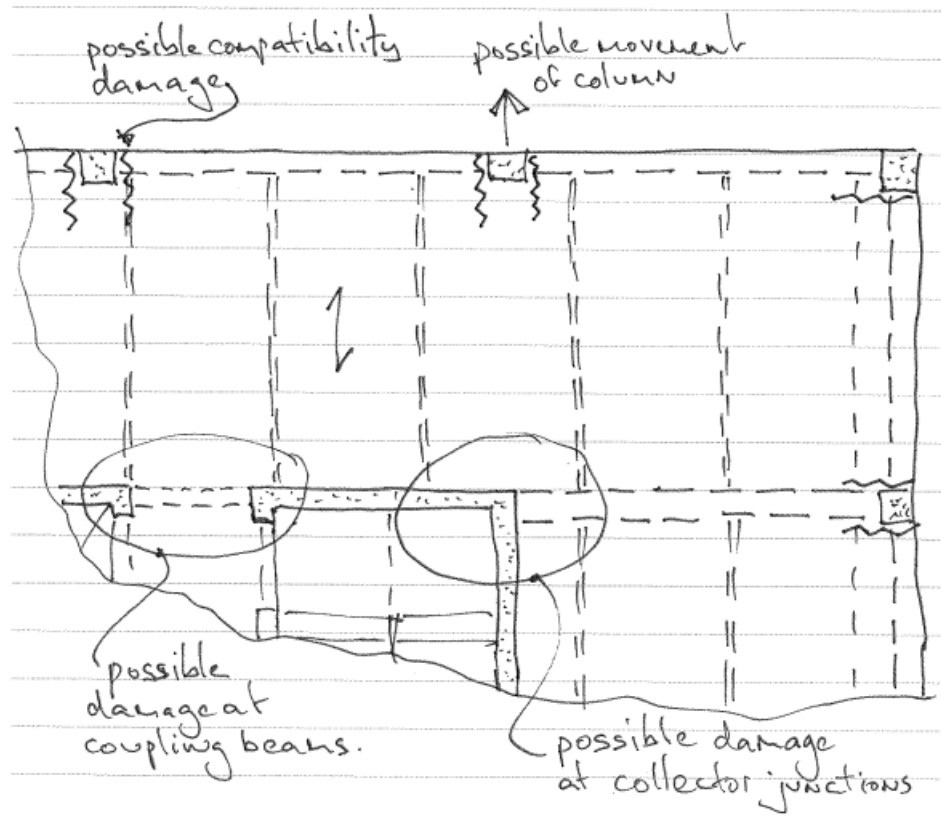 possible compatibility
damage
possible movement
of column
possible
damage at
coupling beams.
possible damage
at collector junctions